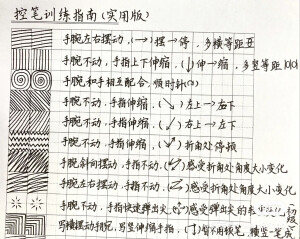 控笔训练指南(实用版)
手腕左右摆动,(→)摆→停,多横等距
手腕不动,手指上下伸缩,(↓)伸→缩,多竖等距
手腕和手相互配合,顺时针
手腕不动,手指伸缩,(↘)左上→右下
手腕不动,手指伸缩(↙)右上→左下
手腕不动,手指伸缩,折角处停顿
手腕斜向摆动,手指不动,感受折角处角度大小变化
手腕左右摆动,手指不动,感受折角处角度大小变化
手腕不动,手指快速弹出尖,感受弹出尖的
写横摆动手腕,写竖伸缩手指,暂不用顿笔,横竖一笔成